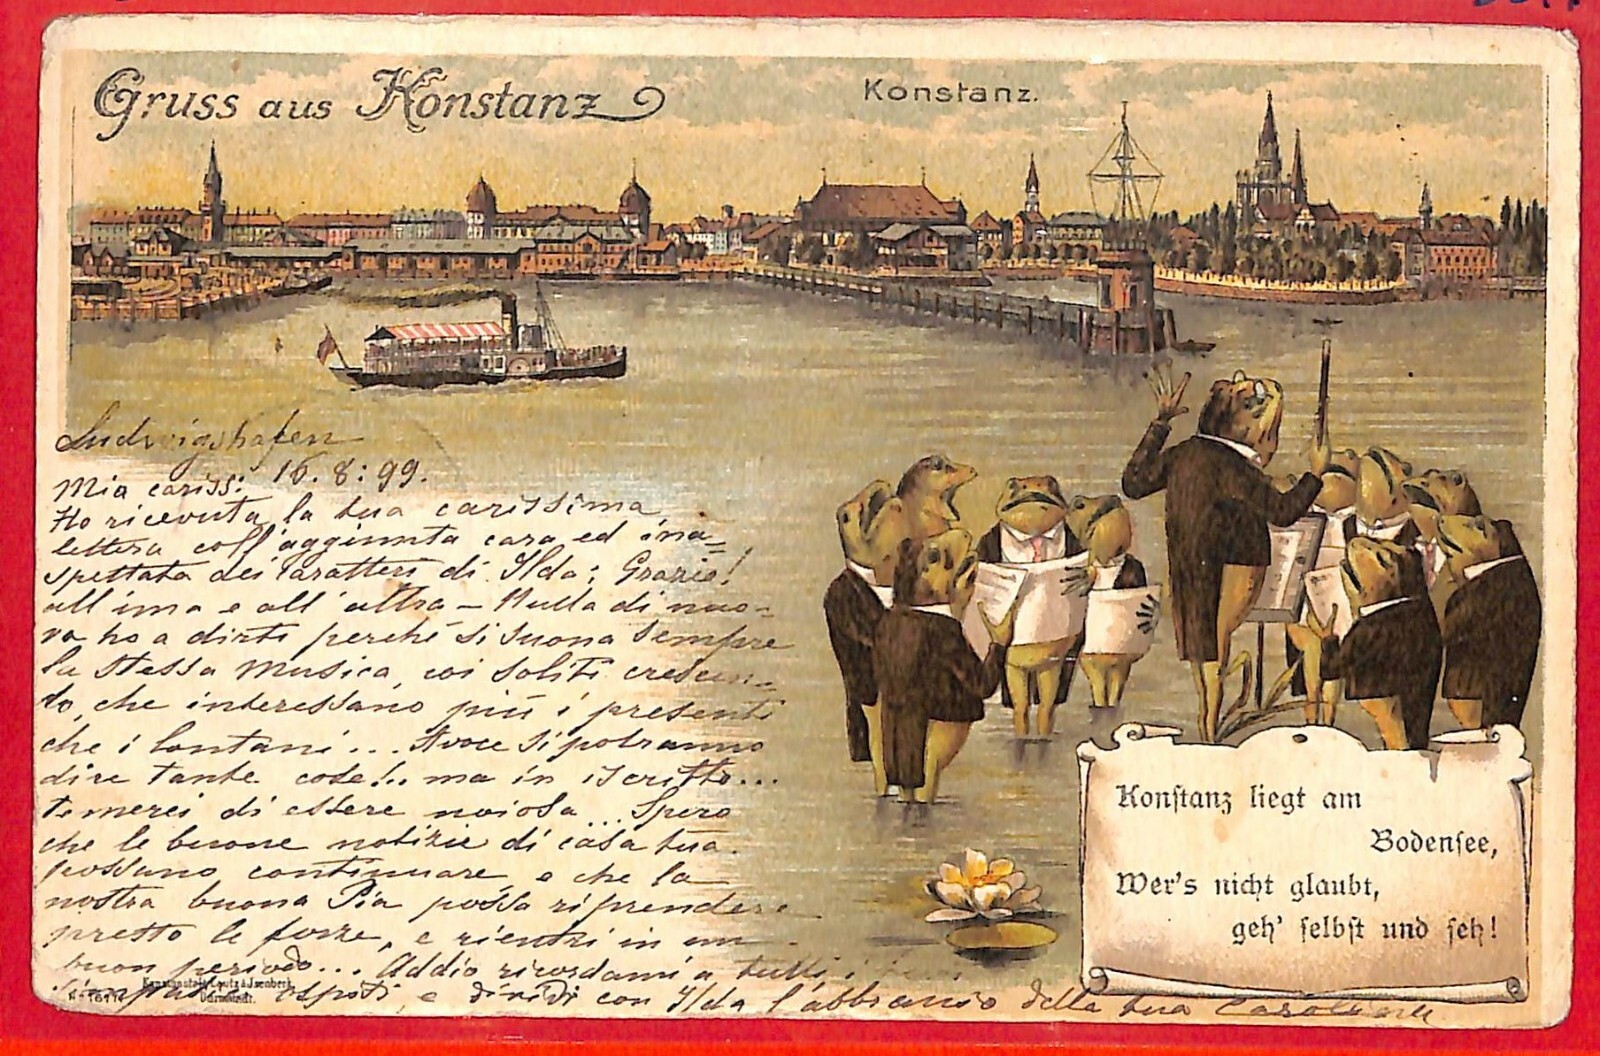 Gruss aus Konstanz
Konstanz.
Ludwigshafen
16.8:99.
Mia cariss:
Ho ricevuta la tua carissima
lettera coll'aggiunta cara ed ina=
spettata dei caratteri di Ilda; Grazie!
all'una e all'altra – Nulla di nuo-
va ho a dirti perché si suona sempre
la stessa musica, coi soliti
che interessano più i presenti
che i lontani... A voce si potranno
dire tante cose!.. ma in iscritto...
temerei di essere noiosa... Spero
che le buone notizie di casa tua
possano continuare e che la
nostra buona Pia possa riprendere
presto le forze, e rientri in un
buon periodo... Addio ricordami a tutti i
ospiti, e dividi con Ilda l'abbraccio della tua
Konſtanz liegt am
Bodenſee,
Wer's nicht glaubt,
geh' ſelbſt und ſeh!
Kunstanstalt Lautz & Isenbeck
Darmstadt.